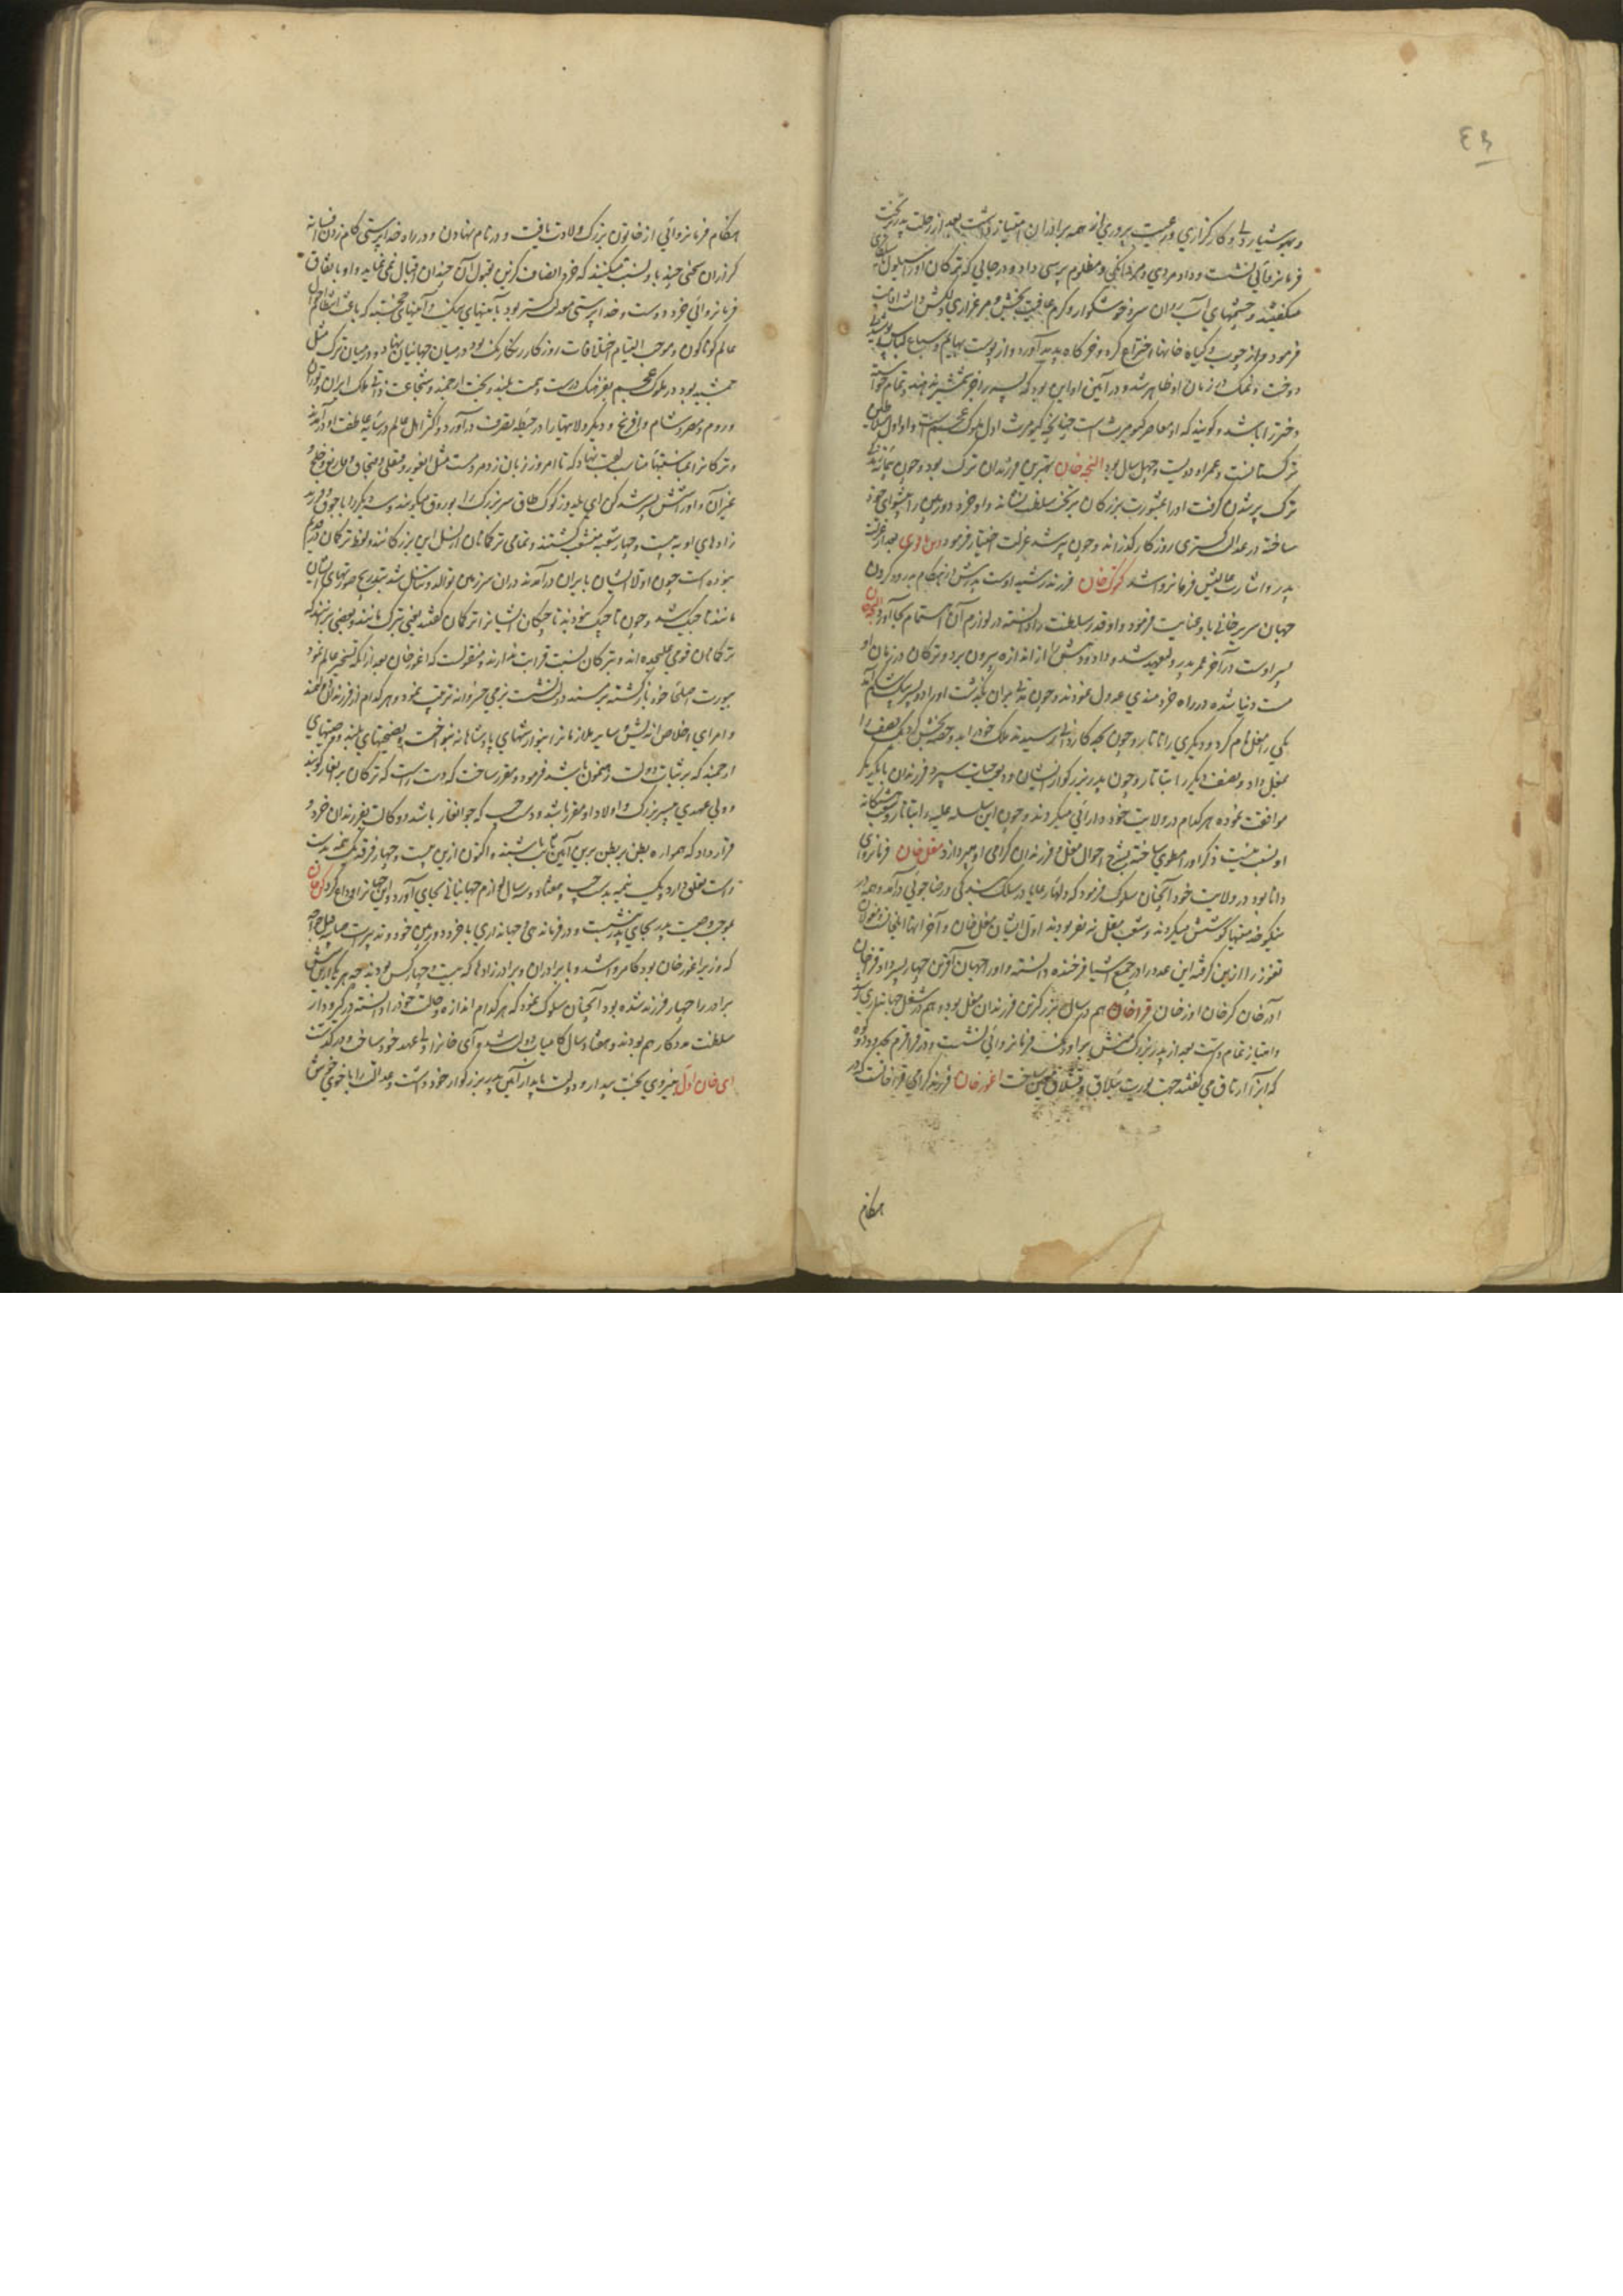 و هوشیار دلی و کارگزاری و رعیت پروری از همه برادران امتیاز داشت بعد از رحلت پدر بر تخت
فرمانروائی نشست و داد مردی و مردانگی و مظلوم پرسی داد و در جائی که ترکان اورا سیلوک
میگفتند و چشمهای آب روان سرد خوشگوار و گرم عافیت بخش و مرغزاری دلکش داشت اقامت
فرمود و از چوب و گیاه خانها اختراع کرد و خرگاه پدید آورد و از پوست بهایم و سباع لباس
دوخت و نمک در زمان او ظاهر شد و در آیین او این بود که پسر را جز شمشیر ندهند و تمام خواسته
دختر را باشد و گویند که او معاصر کیومرث است چنانچه کیومرث اول ملوک عجم است او اول سلاطین
ترکستانست و عمر او دویست و چهل سال بود النجه خان بهترین فرزندان ترک بود و چون پیمانه زندگی
ترک پر شدن گرفت اورا بمشورت بزرگان بر تخت سلطنت نشاند و او خرد دوربین را پیشوای خود
ساخته در عدالت گستری روزگار گذرانید و چون پیر شد عزلت اختیار فرمود دیب باقوی بعد از عزلت
پدر و اشارت عالیش فرمانروا شد کیوک خان فرزند رشید اوست پدرش در هنگام بدرود کردن
جهان سریر خانی باو عنایت فرمود و او قدر سلطنت را دانسته در لوازم آن اهتمام بجا آورد النجه خان
پسر اوست در آخر عمر پدر ولیعهد شد و داد و دهش را از اندازه بیرون برد و ترکان در زمان او
مست دنیا شده در راه خردمندی عدول نمودند و چون مدتی بران بگذشت اورا دو پسر بیک شکم آمد
یکی را مغل نام کرد و دیگری را تاتار و چون بحد کاردانی رسیدند ملک خود را بدو حصه بخش کرد یک نصف را
بمغل داد و نصف دیگر را بتاتار و چون پدر بزرگوار ایشان ودیعت حیات سپرد فرزندان با یکدیگر
موافقت نموده هر کدام در ولایت خود دارائی میکردند و چون این سلسله علیه را بتاتار و شعب هشتگانه
او نسبت نیست ذکر او را مطوی ساخته بشرح احوال مغل و فرزندان گرامی او میپردازد مغل خان فرمانروای
دانا بود در ولایت خود آنچنان سلوک فرمود که دلهای رعایا در سلک بندگی و رضاجوئی درآمد و همه در
نیکو خدمتیها کوشش میکردند و شعب مغل نه نفر بودند اول ایشان مغل خان و آخر آنها ایلخان و مغولان
تقوز را ازین گرفته این عدد را در جمیع اشیا فرخنده دانسته و اورا جهان آفرین چهار پسر داد قرا خان
آذر خان کر خان اوز خان قرا خان هم در سال بزرگترین فرزندان مغل بود و هم در شغل جهانداری
و امتیاز تمام داشت بعد از پدر بزرگ منش بر اورنگ فرمانروائی نشست و در قراقرم بحدود دو کوه
که آنرا ارتاق می گفتند جهت یورت ییلاق و قشلاق معین ساخت اغوز خان فرزند گرامی قرا خانست که در
هنگام
هنگام فرمانروائی از خاتون بزرگ ولادت یافت و در نام نهادن و در راه خداپرستی گام زدن افسانه
گزاران سخنی چند باو نسبت میکنند که خرد انصاف گزین بقبول آن چندان اقبال نمی نماید و او باتفاق
فرمانروائی خرد دوست و خداپرستی معدلت گستر بود بآئینهای نیک و آئینهای خجسته که باعث انتظام احوال
عالم گوناگون و موجب التیام اختلافات روزگار رنگارنگ بود در میان جهانیان نهاد و در میان ترک مثل
جمشید بود در ملوک عجم بفرهنگ درست و همت بلند و بخت ارجمند و شجاعت ذاتی ملک ایران و توران
و روم و مصر و شام و افرنج و دیگر ولایتها را در حیطه تصرف درآورد و اکثر اهل عالم در سایه عاطفت او درآمدند
و ترکانرا بمناسبتها مناسب لقب نهاد که تا امروز زبان زد مردمست مثل ایغور و قنقلی و قبچاق و قارلیغ و خلج و
غیر آن و اورا شش پسر شد کن آی یلدوز گوک طاق سر بزرگ را بوروق میگویند و سه دیگر را اجوق و فرزند
زادهای او به بیست و چهار شعبه منشعب گشتند و تمامی ترکمان از نسل این بزرگانند و لفظ ترکمان در قدیم
نبوده است چون اولاد ایشان بایران درآمدند دران سرزمین توالد و تناسل شد بتدریج صورتهای ایشان
مانند تاجیک شد و چون تاجیک نبودند تاجیکان ایشانرا ترکمان گفتند یعنی ترک مانند و بعضی برینند که
ترکمان قومی علیحده اند و بترکان نسبت قرابت ندارند و منقولست که اغوز خان بعد از آنکه تسخیر عالم نمود
بیورت اصلی خود بازگشته بر مسند دولت نشست بزمی خسروانه ترتیب نمود و هر کدام از فرزندان دولتمند
و امرای اخلاص اندیش و سایر ملازمانرا بنوازشهای پادشاهانه بنواخت و بنصیحتهای بلند و وصیتهای
ارجمند که بر ثبات دولت رهنمون باشد فرمود و مقرر ساخت که دست راست که ترکان برانغار گویند
و ولی عهدی بپسر بزرگ و اولاد او مقرر باشد و دست چپ که جوانغار باشد و وکالت بفرزندان خرد و
قرار داد که همواره بطن بر بطن برین آیین ثابت باشند و اکنون ازین بیست و چهار فرقه یک نیمه بدست
راست تعلق دارد و یک نیمه بدست چپ و هفتاد و سه سال لوازم جهانبانی بجای آورد و این جهانرا وداع کرد کن خان
بموجب وصیت پدر بجای پدر نشست و در فرماندهی و جهانداری با خرد دوربین خود و تدبیرات صائبه
که وزیر اغوز خان بود کامروا شد و با برادران و برادرزادها که بیست و چهار کس بودند چه هر یک ازین شش
برادر را چهار فرزند شده بود آنچنان سلوک نمود که هر کدام اندازه حالت خود را دانسته در گیرودار
سلطنت مددکار هم بودند و هفتاد سال کامیاب دولت شد و آی خانرا ولی عهد خود ساخت و درگذشت
آی خان اول بنیروی بخت بیدار و دولت پایدار آیین پدر بزرگوار خود داشت و عدالت را با خوی خوش